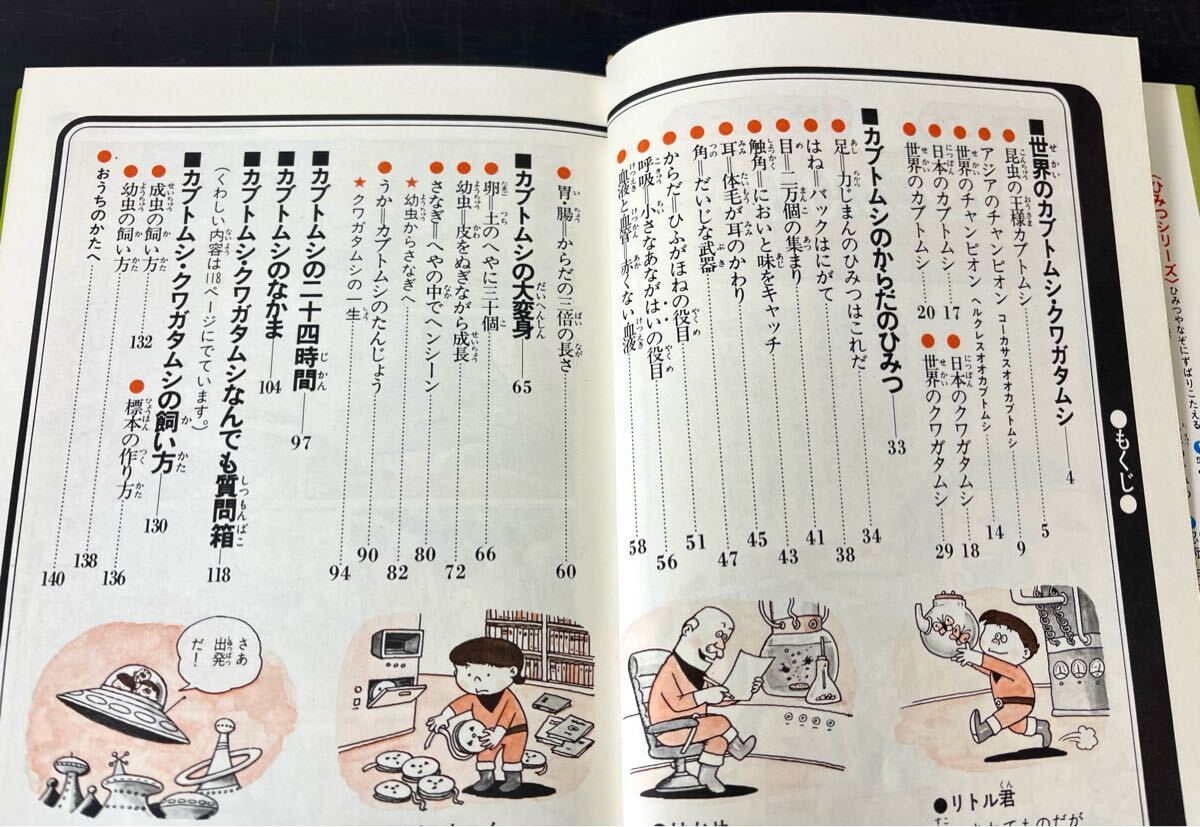 ●もくじ●
■世界のカブトムシ・クワガタムシ 4
●昆虫の王様カブトムシ 5
アジアのチャンピオン コーカサスオオカブトムシ 9
●世界のチャンピオン ヘルクレスオオカブトムシ 14
●日本のカブトムシ 17
●日本のクワガタムシ 18
●世界のカブトムシ 20
●世界のクワガタムシ 29
■カブトムシのからだのひみつ 33
●足=力じまんのひみつはこれだ 34
●はね=バックはにがて 38
●目=二万個の集まり 41
●触角=においと味をキャッチ 43
●耳=体毛が耳のかわり 45
●角=だいじな武器 47
●からだ=ひふがほねの役目 51
●呼吸=小さなあながはいの役目 56
●血液と血管=赤くない血液 58
●胃・腸=からだの三倍の長さ 60
■カブトムシの大変身 65
●卵=土のへやに三十個 66
●幼虫=皮をぬぎながら成長 72
●さなぎ=へやの中でヘンシーン 80
★幼虫からさなぎへ 82
●うか=カブトムシのたんじょう 90
★クワガタムシの一生 94
■カブトムシの二十四時間 97
■カブトムシのなかま 104
■カブトムシ・クワガタムシなんでも質問箱 118
(くわしい内容は118ページにでています。)
■カブトムシ・クワガタムシの飼い方 130
●成虫の飼い方 132
●標本の作り方 136
●幼虫の飼い方 138
●おうちのかたへ 140
さあ
出発
だ!
●リトル君
〈ひみつシリーズ〉
ひみつやなぞにずばりこたえる